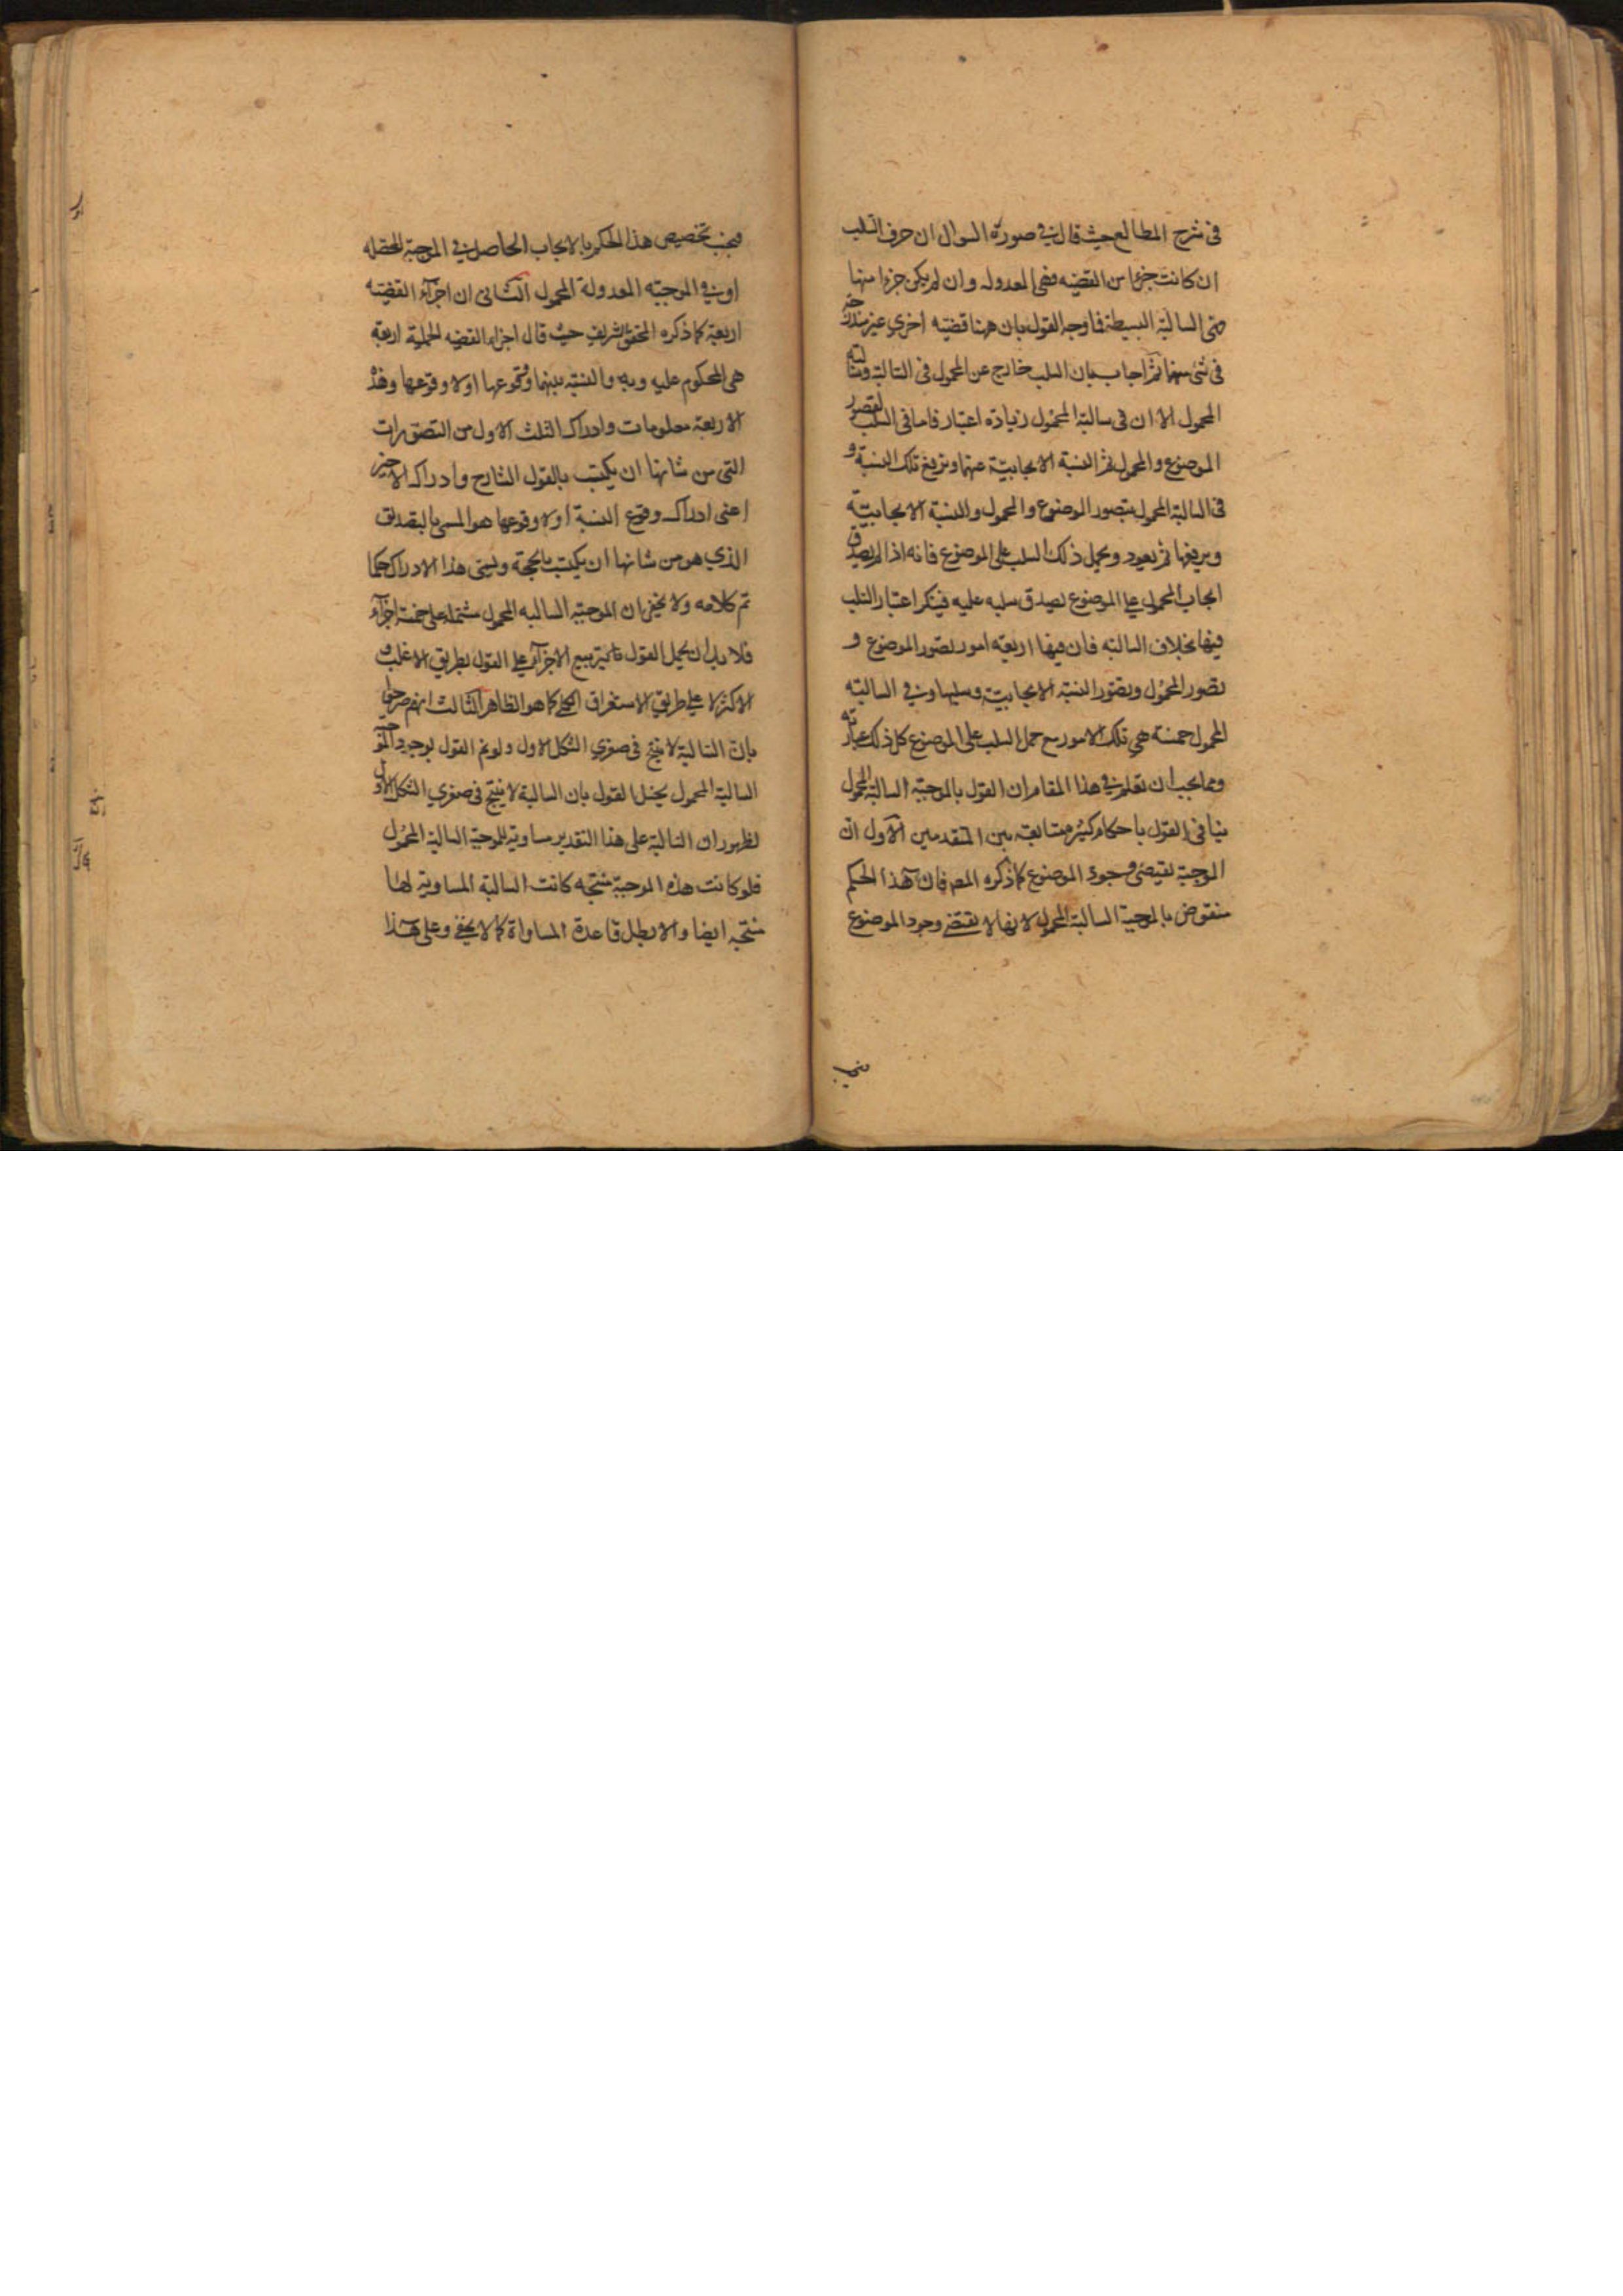 في شرح المطالع حيث قال في صورة السوال ان حرف السلب
ان كانت جزءا من القضيه فهى المعدوله وان لم يكن جزءا منها
فهى السالبة البسيطة فما وجه القول بان ههنا قضيه اخرى غير مندرجة
في شئ منهما ثم اجاب بان السلب خارج عن المحمول في السالبة وسالبة
المحمول الا ان في سالبة المحمول زيادة اعتبار فاما في السلب نتصور
الموضوع والمحمول ثم النسبة الايجابية عنهما ونرفع تلك النسبة و
في السالبة المحمول نتصور الموضوع والمحمول والنسبة الايجابية
ويرفعها ثم يعود ويحمل ذلك السلب على الموضوع فانه اذا لم يصدق
ايجاب المحمول على الموضوع لصدق سلبه عليه فيتكرر اعتبار السلب
فيها بخلاف السالبه فان فيها اربعه امور تصور الموضوع و
تصور المحمول وتصور النسبة الايجابية وسلبها وفي السالبه
المحمول خمسة هي تلك الامور مع حمل السلب على الموضوع كل ذلك عبارته
ومما يجب ان تعلم في هذا المقام ان القول بالموجبة السالبة المحمول
ينافي القول باحكام كثيرة شايعة بين المتقدمين الاول ان
الموجبة تقتضى وجود الموضوع كما ذكره المص فان هذا الحكم
منقوض بالموجبة السالبة المحمول لانها لا تقتضى وجود الموضوع
فيجب
فيجب تخصيص هذا الحكم بالايجاب الحاصل في الموجبة المحصله
او في الموجبه المعدولة المحمول الثانى ان اجزاء القضيه
اربعة كما ذكره المحقق الشريف حيث قال اجزاء القضيه الحملية اربعة
هى المحكوم عليه وبه والنسبة بينهما ووقوعها اولا وقوعها وهذه
الاربعة معلومات وادراك الثلث الاول من التصورات
التى من شانها ان يكتسب بالقول الشارح وادراك الاخير
اعنى ادراك وقوع النسبة اولا وقوعها هو المسمى بالتصديق
الذي هو من شانها ان يكتسب بالحجة ويسمى هذا الادراك حكما
تم كلامه ولا يخفى ان الموجبة السالبه المحمول مشتملة على خمسة اجزاء
فلا بد ان يحمل القول بتربيع الاجزاء على القول بطريق الاغلب و
الاكثر لا على طريق الاستغراق الكلى كما هو الظاهر الثالث انهم صرحوا
بان السالبة لا ينتج في صغرى الشكل الاول ولو تم القول بوجود الموجبة
السالبة المحمول يختل القول بان السالبة لا ينتج في صغرى الشكل الاول
لظهور ان السالبة على هذا التقدير مساوية للموجبة السالبة المحمول
فلو كانت هذه الموجبة منتجه كانت السالبة المساوية لها
منتجه ايضا والا بطل قاعدة المساواة كما لا يخفى وعلى هذا